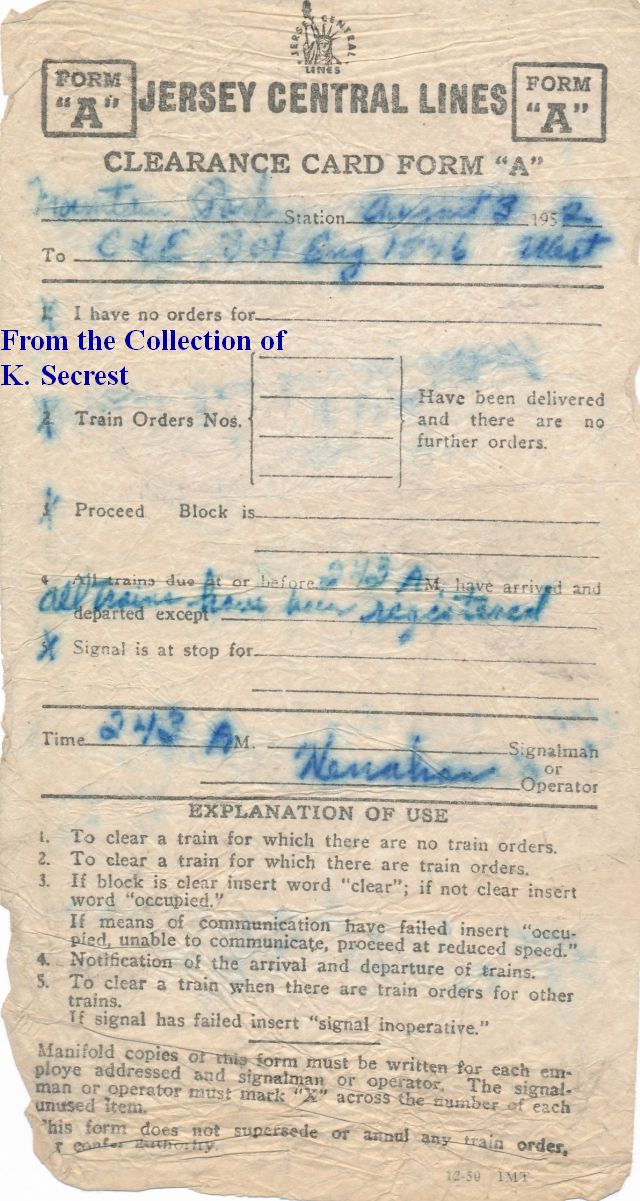 JERSEY CENTRAL
LINES
FORM "A"
JERSEY CENTRAL LINES
FORM "A"
CLEARANCE CARD FORM "A"
Station August 3 1952
To C & E Eng West
1. I have no orders for
From the Collection of
K. Secrest
2. Train Orders Nos.
Have been delivered
and there are no
further orders.
3. Proceed Block is
4. All trains due at or before 243 AM, have arrived and
all trains have been registered
departed except
5. Signal is at stop for
Time 243 AM.
Signalman
or
Operator
EXPLANATION OF USE
1. To clear a train for which there are no train orders.
2. To clear a train for which there are train orders.
3. If block is clear insert word "clear"; if not clear insert
word "occupied."
If means of communication have failed insert "occu-
pied, unable to communicate, proceed at reduced speed."
4. Notification of the arrival and departure of trains.
5. To clear a train when there are train orders for other
trains.
If signal has failed insert "signal inoperative."
Manifold copies of this form must be written for each em-
ploye addressed and signalman or operator. The signal-
man or operator must mark "X" across the number of each
unused item.
his form does not supersede or annul any train order,
r confer authority.
12-50 1MT